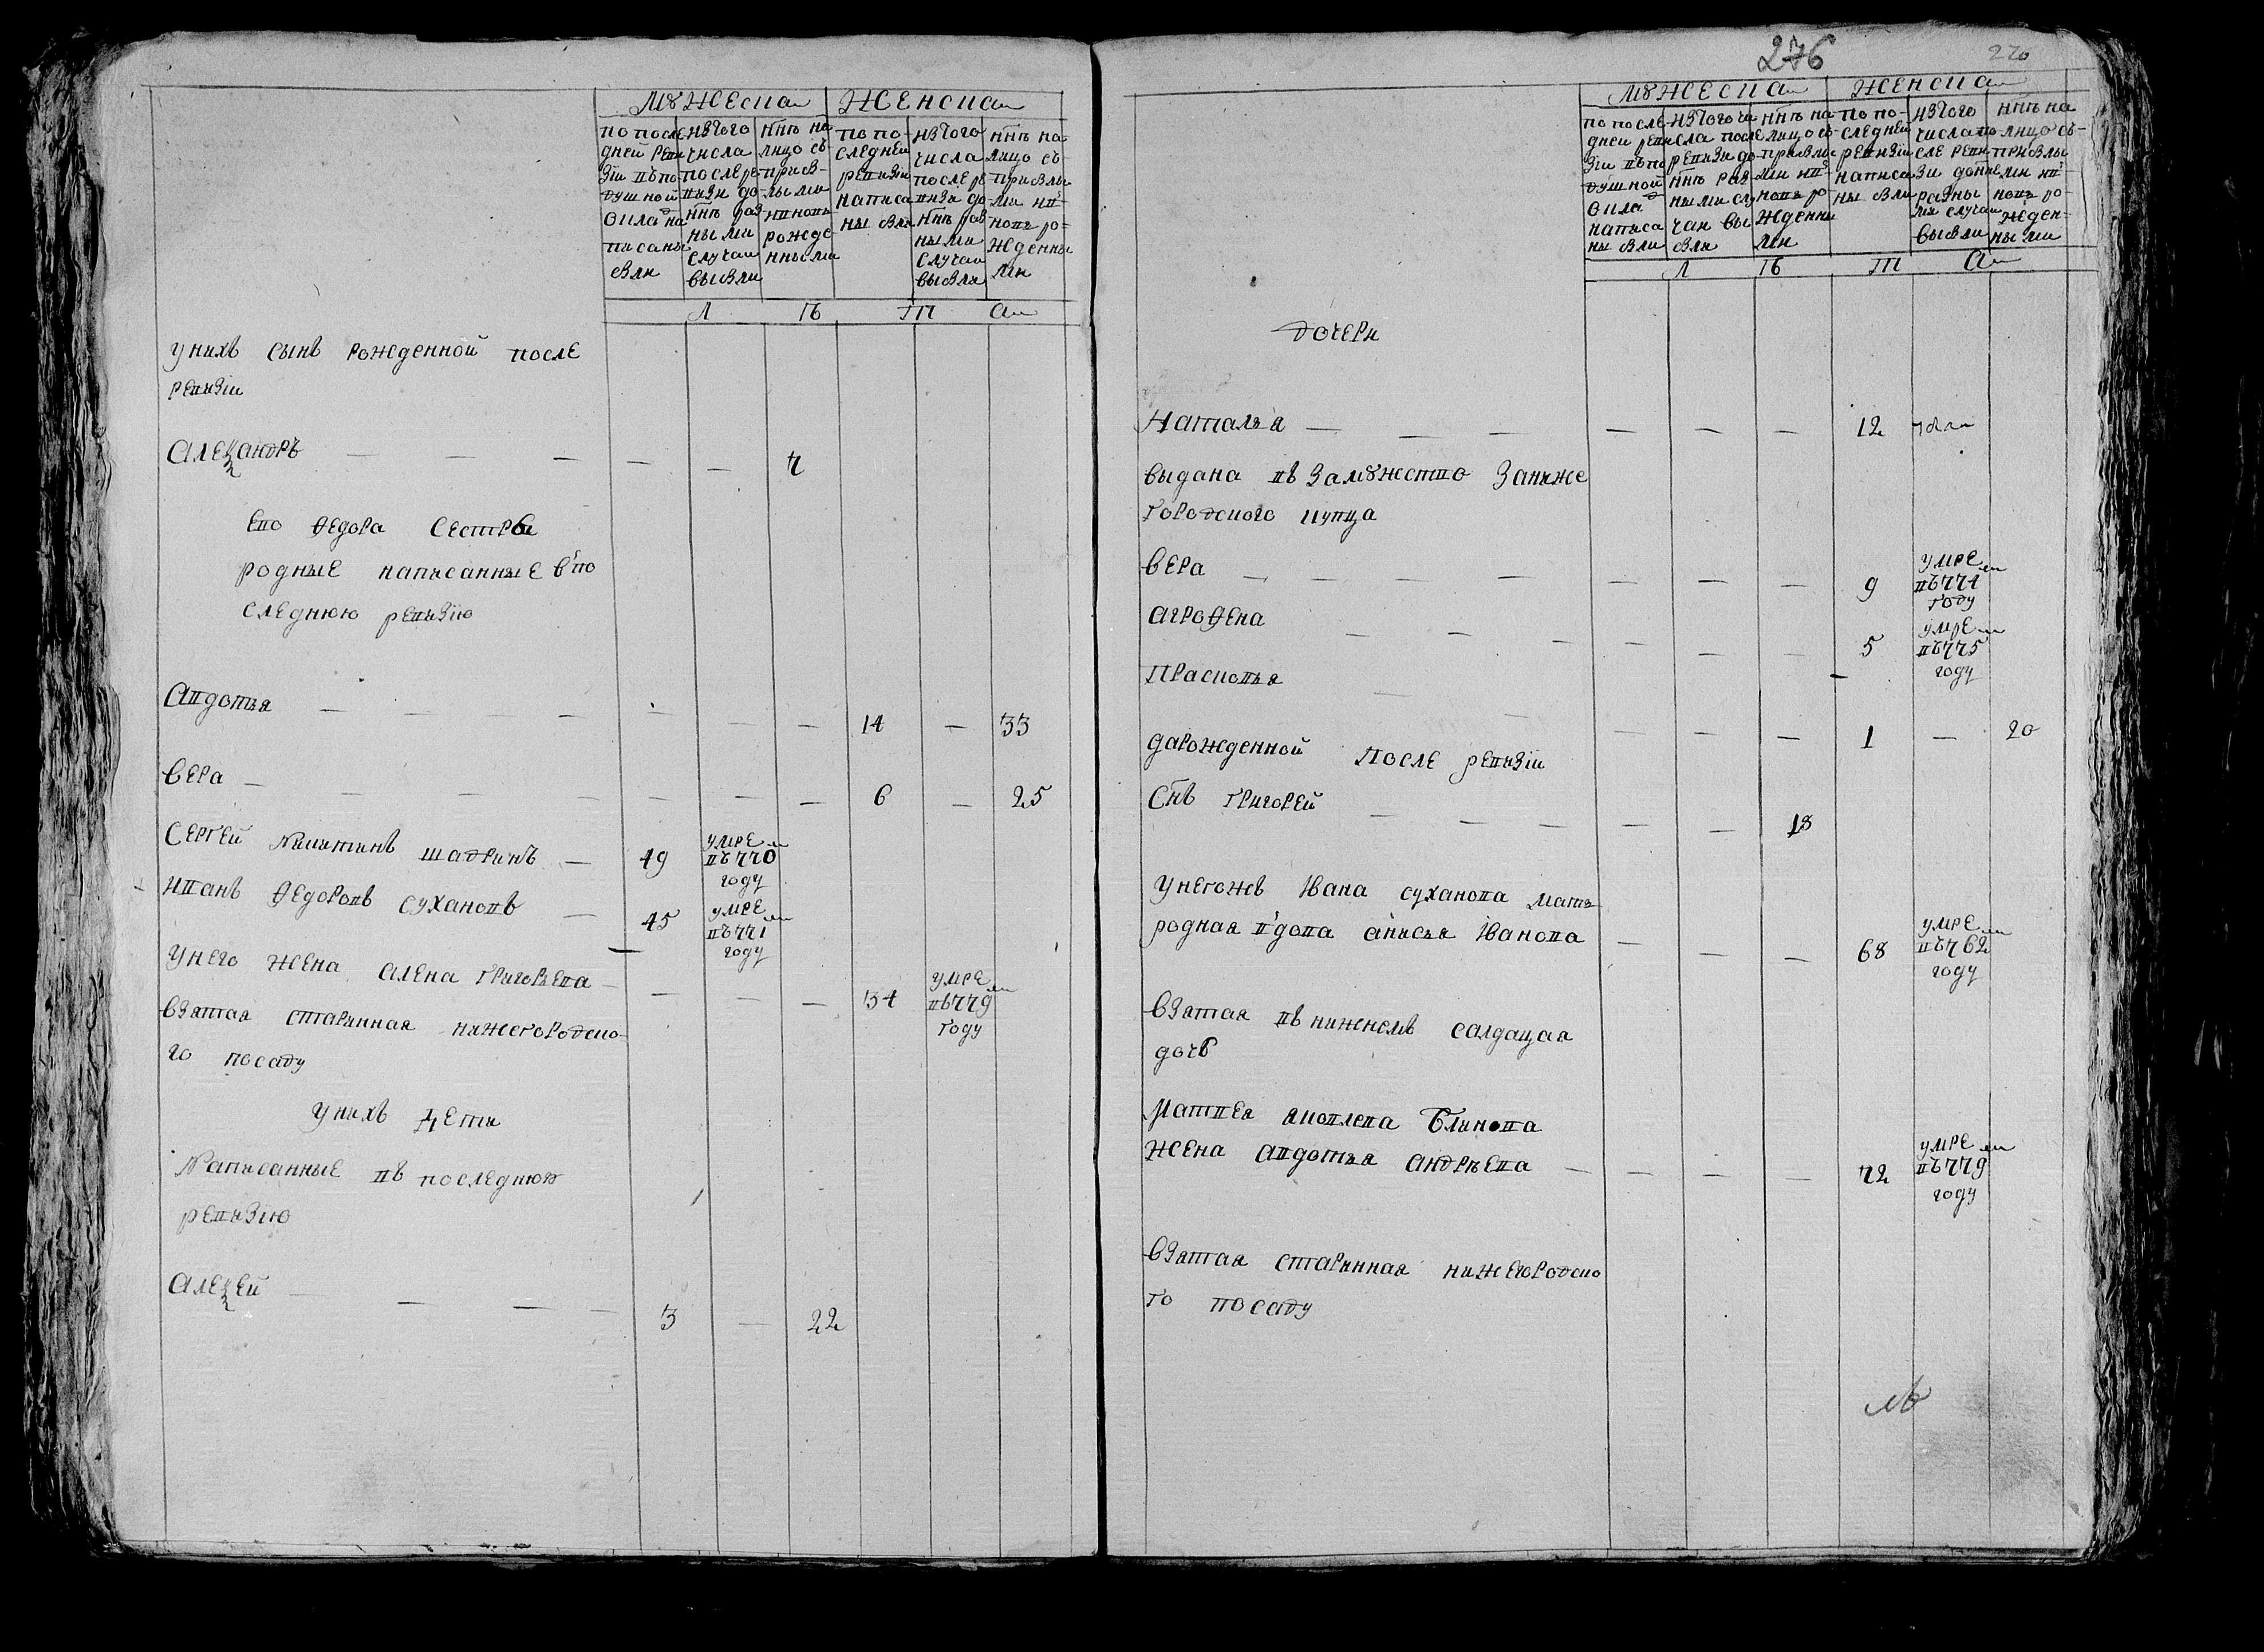 мужеска
женска
по после
дней реви
зіи въ по
душной
окладъ на
писаны
были
изтого
числа
после ре
визіи до
ннѣ раз
ными
случаи
выбыли
ннѣ на
лицо съ
прибы
лыми
ивновь
рожде
нными
по по-
следней
ревизіи
написа
ны были
изтого
числа
после ре
визіи до
ннѣ раз
ными
случаи
выбыли
ннѣ на
лицо съ
прибылы
ми ив-
новь ро-
жденны
ми
л ѣ т а
унихъ сынъ рожденной после
ревизіи
Александръ — — — — — 7
ево Федора сестры
родные написанные в по
следнюю ревизію
Авдотья — — — — — — — 14 — 33
Вера — — — — — — — — 6 — 25
Сергей Никитинъ шадринъ — 49 умре
въ 770
году
Иванъ Федоровъ сухановъ — 45 умре
въ 771
году
Унего жена Алена григорьева — — — — 34 умре
въ 779
году
взятая старинная нижегородско
го посаду
унихъ дети
Написанные въ последнюю
ревизію
Алексей — — — — 3 — 22
276
220
мужеска
женска
по после
дней реви
зіи въ по
душной
окладъ
написа
ны были
изтого чи
сла после
ревизіи до
ннѣ раз
ными слу
чаи вы
были
ннѣ на
лицо съ
прибылы
ми ив
новь ро
жденны
ми
по по-
следней
ревизіи
написа
ны были
изтого
числа по
сле реви
зіи до ннѣ
разны
ми случаи
выбыли
ннѣ на
лицо съ-
прибылы
ми ив-
новь ро-
жден-
ными
л ѣ т а
дочери
Наталья — — — — — — 12
выдана въ замужство за ниже
городского купца
Вера — — — — — — — 9 умре
въ 774
году
Агрофена — — — — — — 5 умре
въ 775
году
Прасковья — — — — — 1 — 20
да рожденной после ревизіи
снъ григорей — — — — — 18
унегожъ Ивана суханова мать
родная вдова анисья Иванова — — — 68 умре
въ 762
году
взятая въ нижнемъ салдацкая
дочь
Матвея яковлева Блинова
жена авдотья андреева — — — — 72 умре
въ 779
году
взятая старинная нижегородско
го посаду